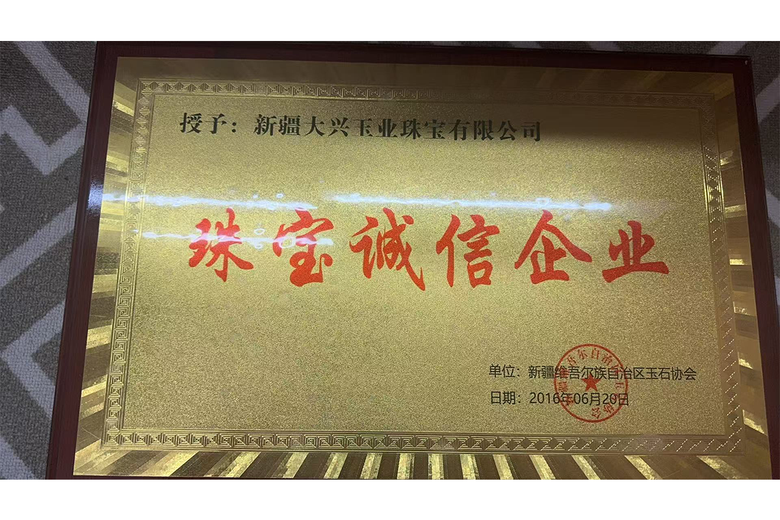 授予：新疆大兴玉业珠宝有限公司
珠宝诚信企业
单位：新疆维吾尔族自治区玉石协会
日期：2016年06月20日